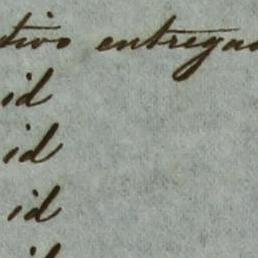 tivo entrega
id
id
id
id